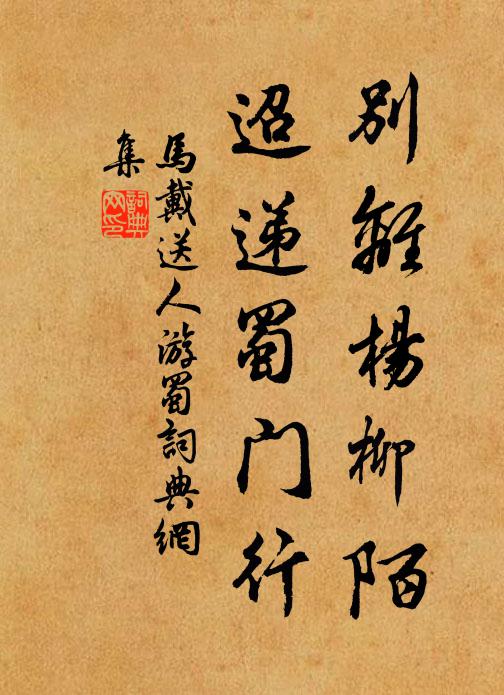 別離楊柳陌
迢递蜀門行
馬戴送人游蜀詞典網
集
詞典
网印